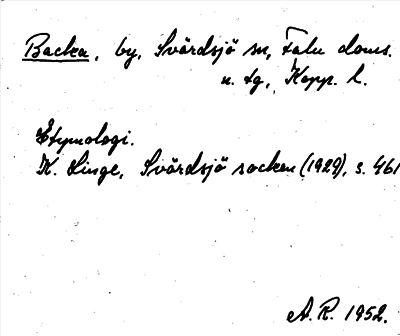 Backa, by, Svärdsjö sn, Falu doms.
n. tg, Kopp. l.
Etymologi.
K. Linge, Svärdsjö socken (1929), s. 461
A. R. 1952.